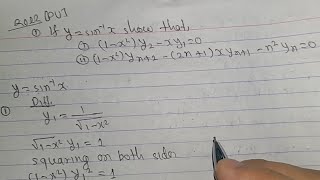 2022 [PU]
① If y = sin⁻¹x show that,
① (1-x²)y₂ - xy₁ = 0
② (1-x²)yₙ₊₂ - (2n+1)xyₙ₊₁ - n²yₙ = 0
y = sin⁻¹x
① Diff.
y₁ = 1/√1-x²
√1-x² y₁ = 1
squaring on both sides
(1-x²) y₁² = 1